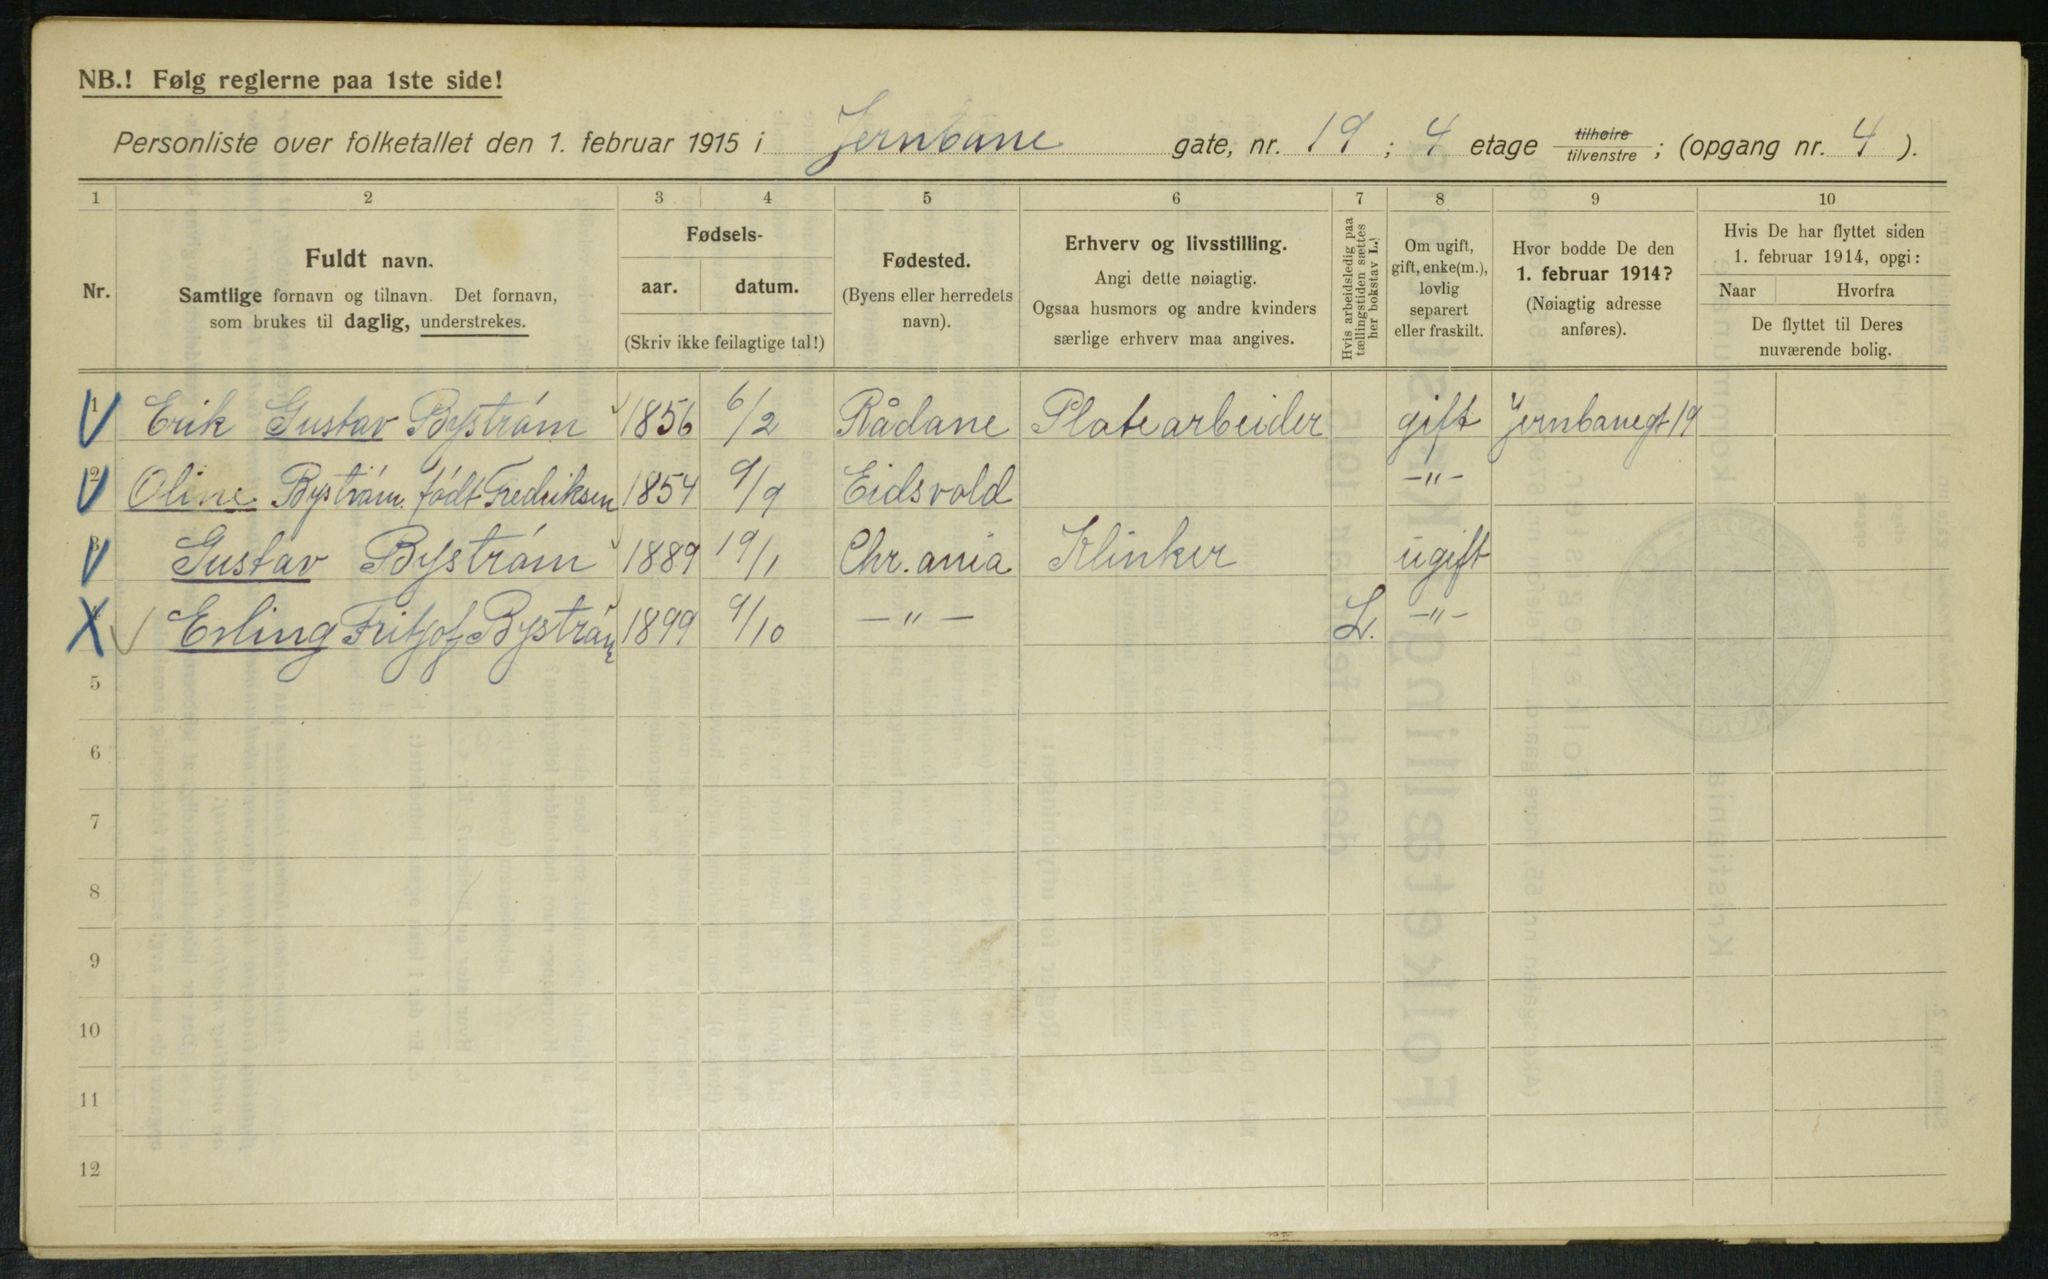 NB.! Følg reglerne paa 1ste side!
Personliste over folketallet den 1. februar 1915 i Jernbane gate, nr. 19; 4 etage tilhøire/tilvenstre; (opgang nr. 4).
1 2 3 4 5 6 7 8 9 10
Nr.
Fuldt navn.
Samtlige fornavn og tilnavn. Det fornavn,
som brukes til daglig, understrekes.
Fødsels-
aar. datum.
(Skriv ikke feilagtige tal!)
Fødested.
(Byens eller herredets
navn).
Erhverv og livsstilling.
Angi dette nøiagtig.
Ogsaa husmors og andre kvinders
særlige erhverv maa angives.
Hvis arbeidsledig paa
tællingstiden sættes
her bokstav L.!
Om ugift,
gift, enke(m.),
lovlig
separert
eller fraskilt.
Hvor bodde De den
1. februar 1914?
(Nøiagtig adresse
anføres).
Hvis De har flyttet siden
1. februar 1914, opgi:
Naar Hvorfra
De flyttet til Deres
nuværende bolig.
1 Erik Gustav Byström 1856 6/2 Rådane Platearbeider gift Jernbanegt 19
2 Oline Byström. født Fredriksen 1854 9/9 Eidsvold -"-
3 Gustav Byström 1889 19/1 Chr.ania Klinker ugift
Erling Fritjof Byström 1899 9/10 -"- L. -"-
5
6
7
8
9
10
11
12